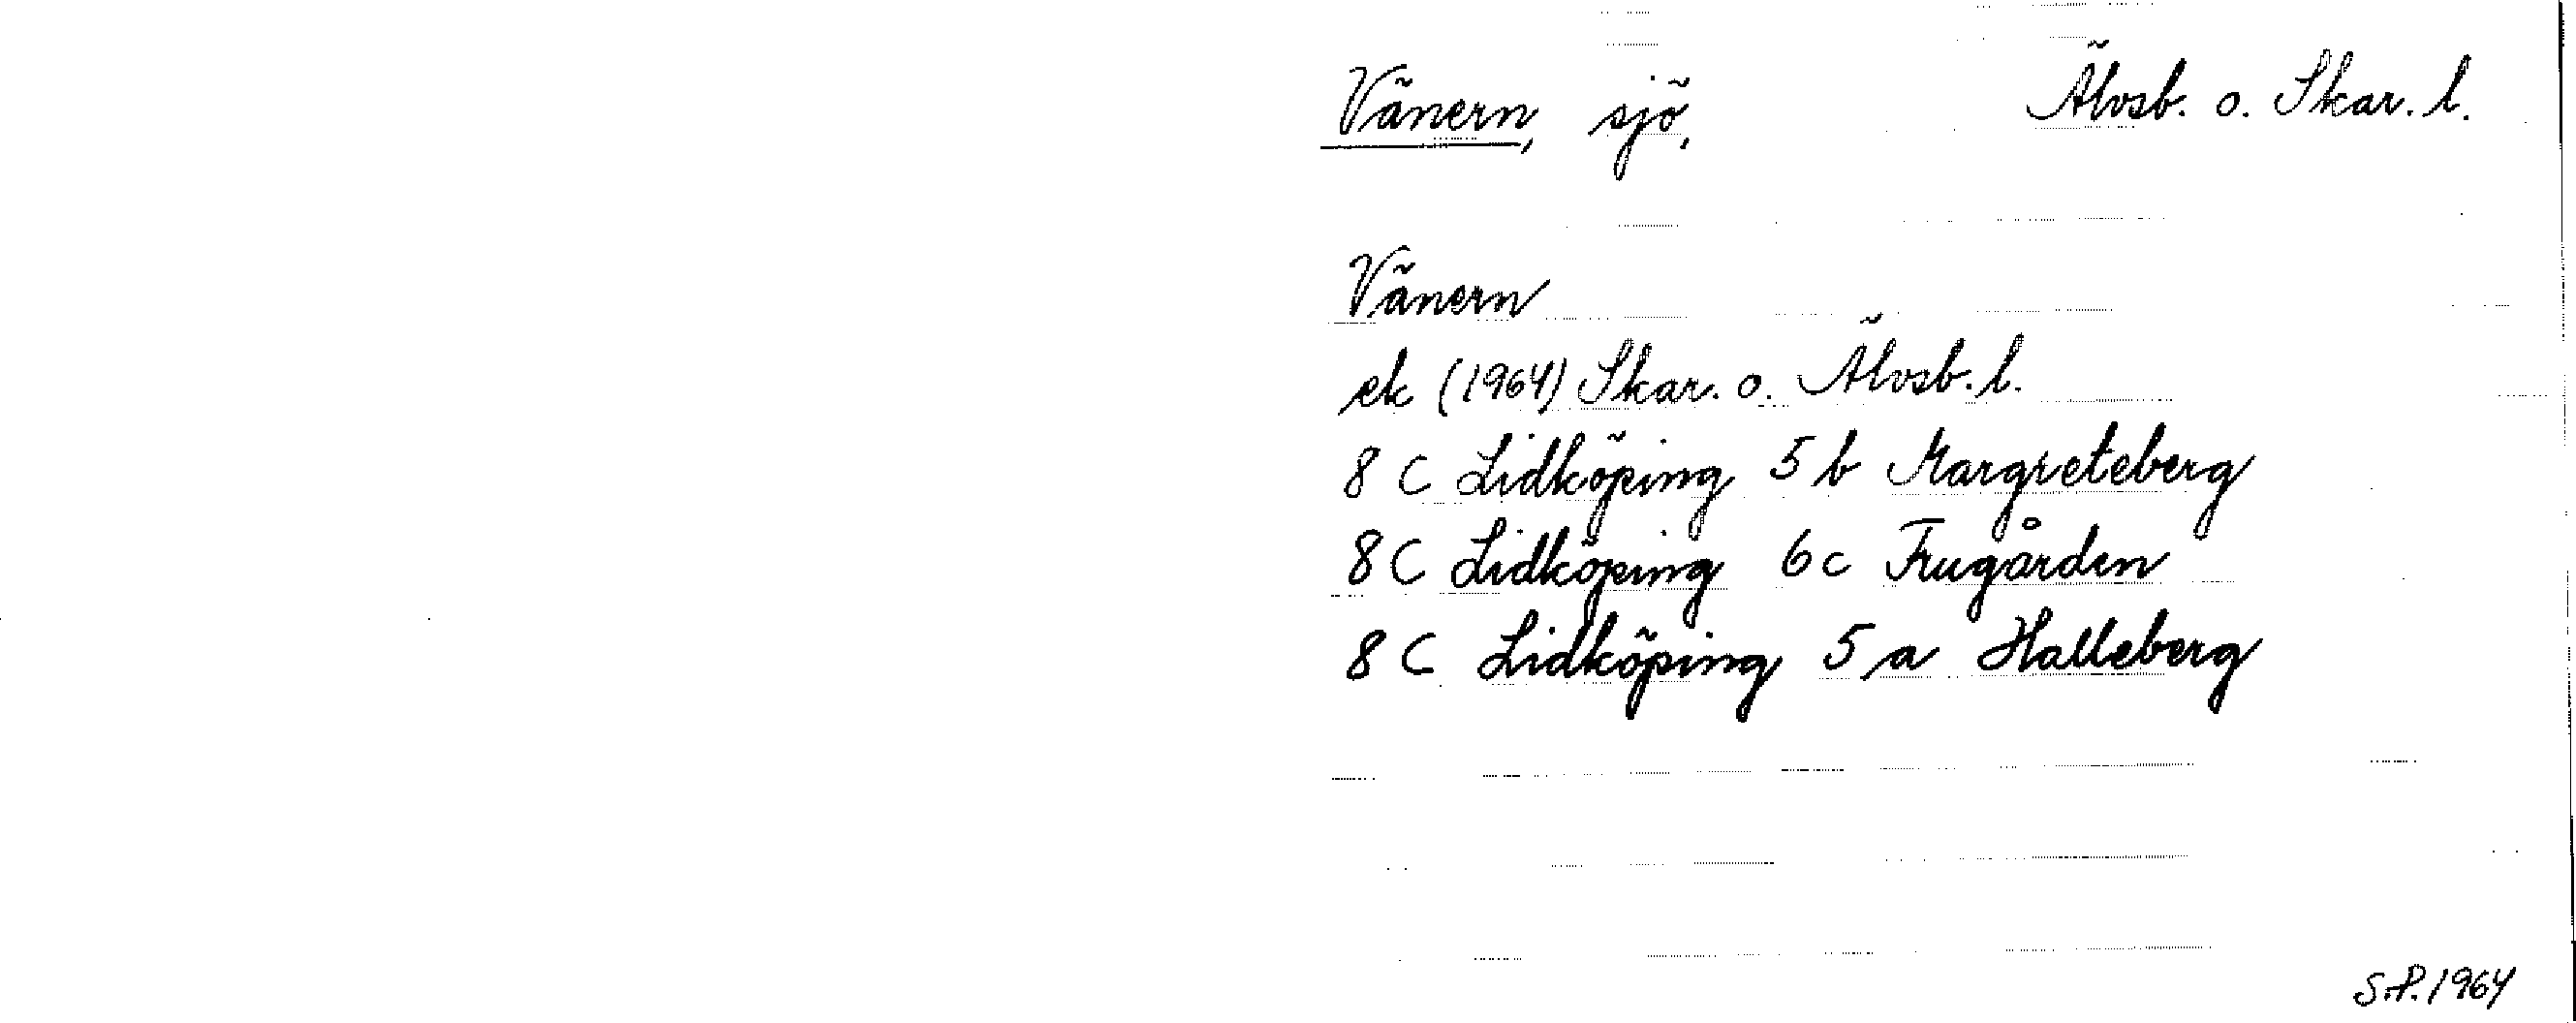 Vänern, sjö, Älvsb. o. Skar. l.
Vänern
ek (1964) Skar. o. Älvsb. l.
8 C Lidköping 5 b Margreteberg
8 C Lidköping 6 c Frugården
8 C Lidköping 5 a Halleberg
S.P. 1964